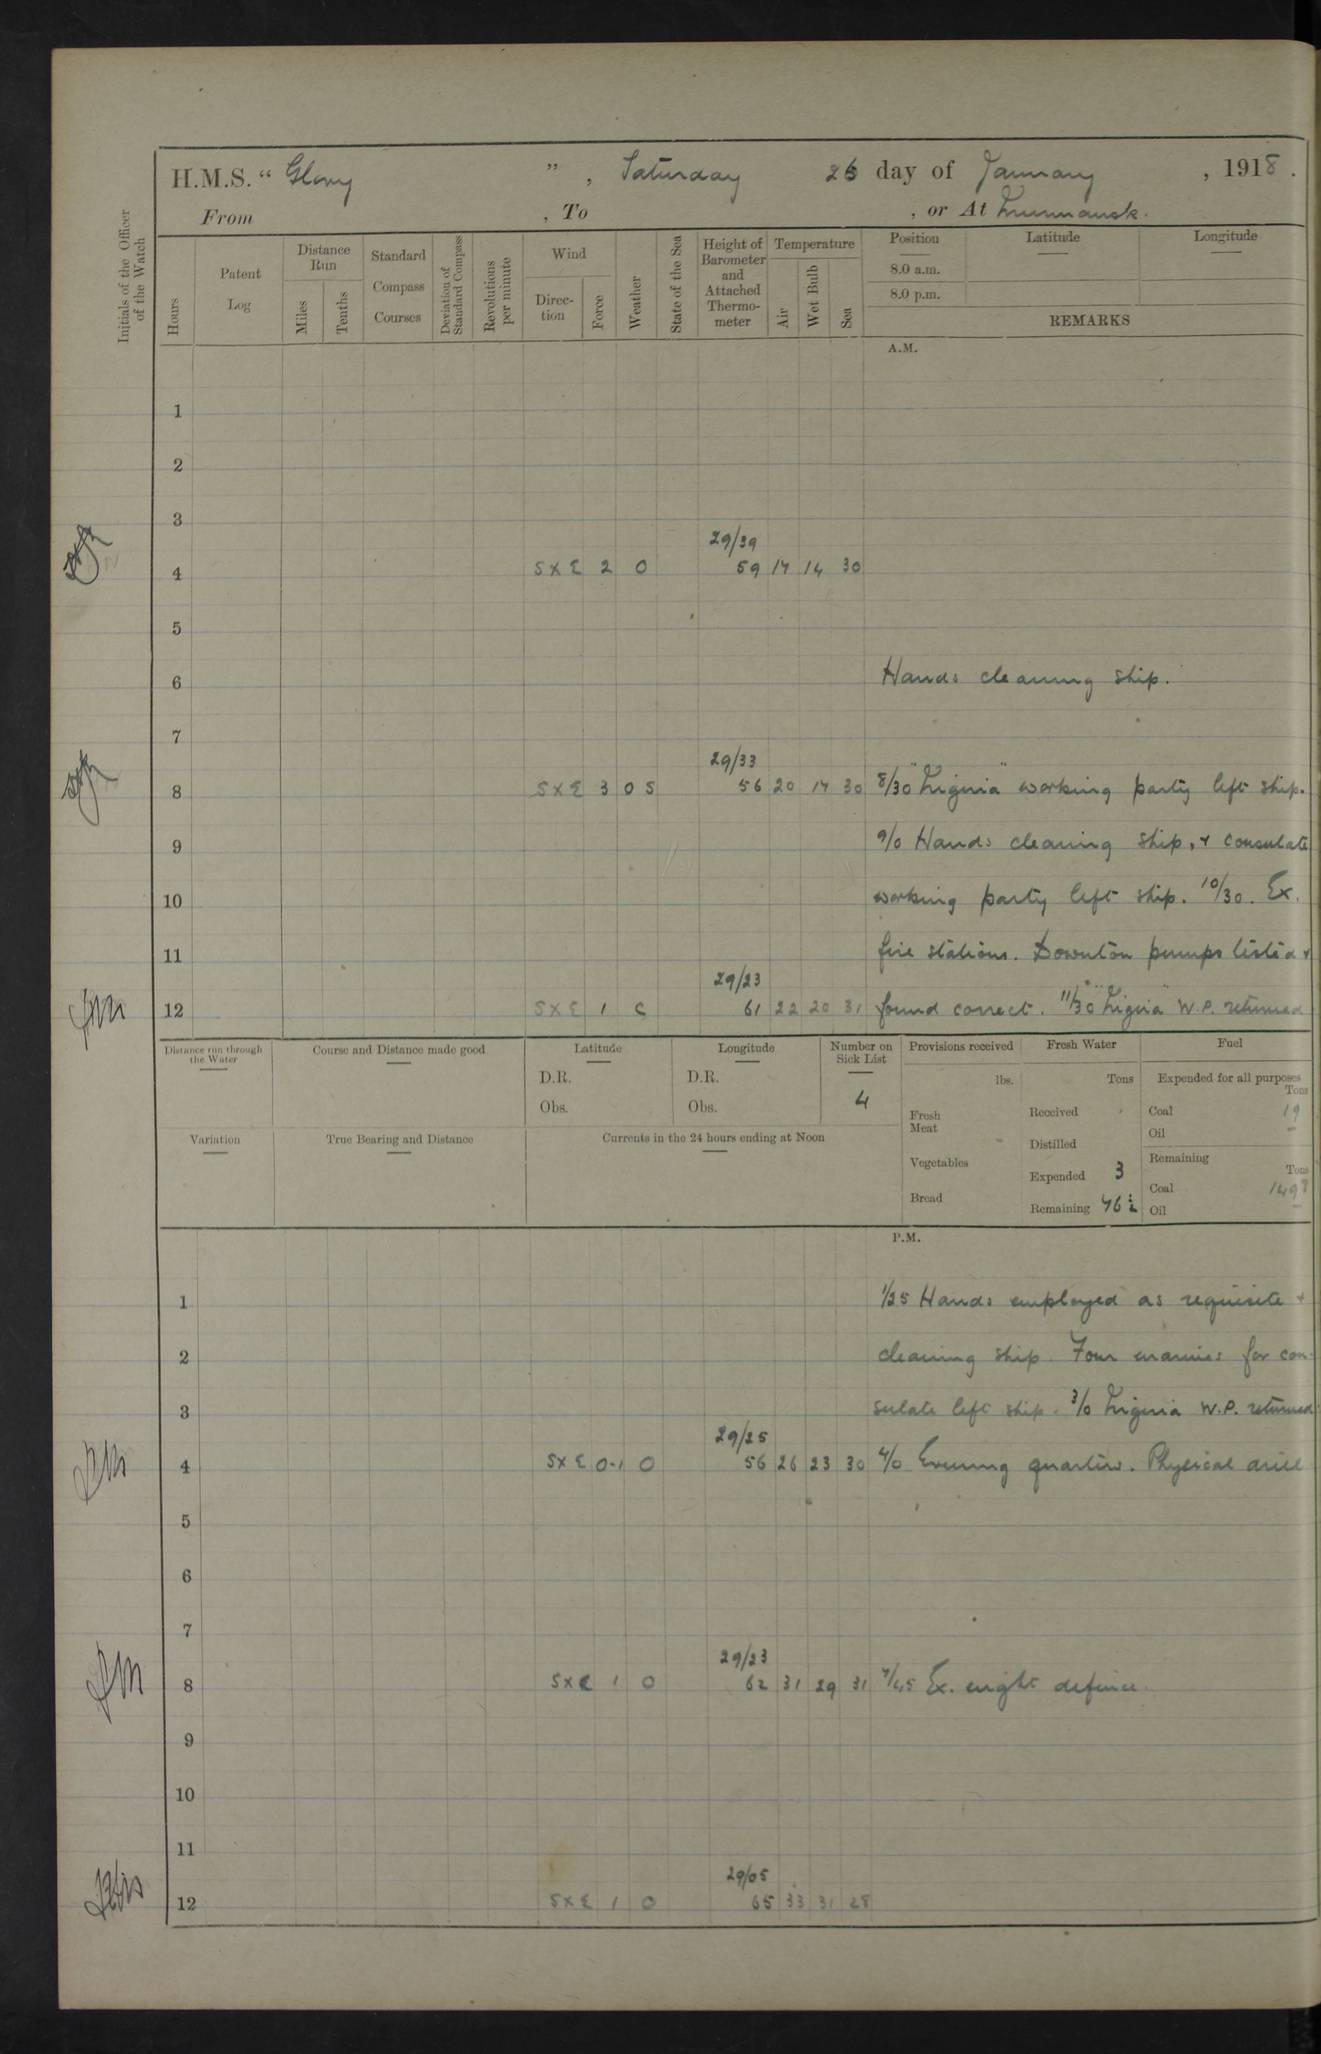 H.M.S. “ Glory ” , Saturday 26 day of January , 1918 .
From , To , or At Murmansk.
Initials of the Officer of the Watch
Hours
Patent Log
Distance Run
Miles
Tenths
Standard Compass Courses
Deviation of Standard Compass
Revolutions per minute
Wind
Direction
Force
Weather
State of the Sea
Height of Barometer and Attached Thermometer
Temperature
Air
Wet Bulb
Sea
Position
Latitude
Longitude
8.0 a.m.
8.0 p.m.
REMARKS
A.M.
1
2
3
29/39
4 S x E 2 O 59 14 14 30
5
6 Hands cleaning ship.
7
29/33
8 S x E 3 O S 56 20 17 30 8/30 "Liguria" working party left ship.
9 9/0 Hands cleaning ship, + consulate
10 working party left ship. 10/30. Ex.
11 fire stations. Downton pumps tested +
29/23
12 S x E 1 C 61 22 20 31 found correct. 11/30 "Liguria" W.P. returned
Distance run through the Water
Course and Distance made good
Latitude
D.R.
Obs.
Longitude
D.R.
Obs.
Number on Sick List
4
Provisions received
lbs.
Fresh Meat
Vegetables
Bread
Fresh Water
Tons
Received
Distilled
Expended 3
Remaining 46 ½
Fuel
Expended for all purposes
Tons
Coal 19
Oil -
Remaining
Tons
Coal 1498
Oil -
Variation
True Bearing and Distance
Currents in the 24 hours ending at Noon
P.M.
1 1/25 Hands employed as requisite +
2 cleaning ship. Four marines for con-
3 sulate left ship. 3/0 Liguria W.P. returned
29/25
4 S x E 0-1 O 56 26 23 30 4/0 Evening quarters. Physical drill
5
6
7
29/23
8 S x E 1 O 62 31 29 31 7/45 Ex. night defence.
9
10
11
29/05
12 S x E 1 O 65 33 31 28